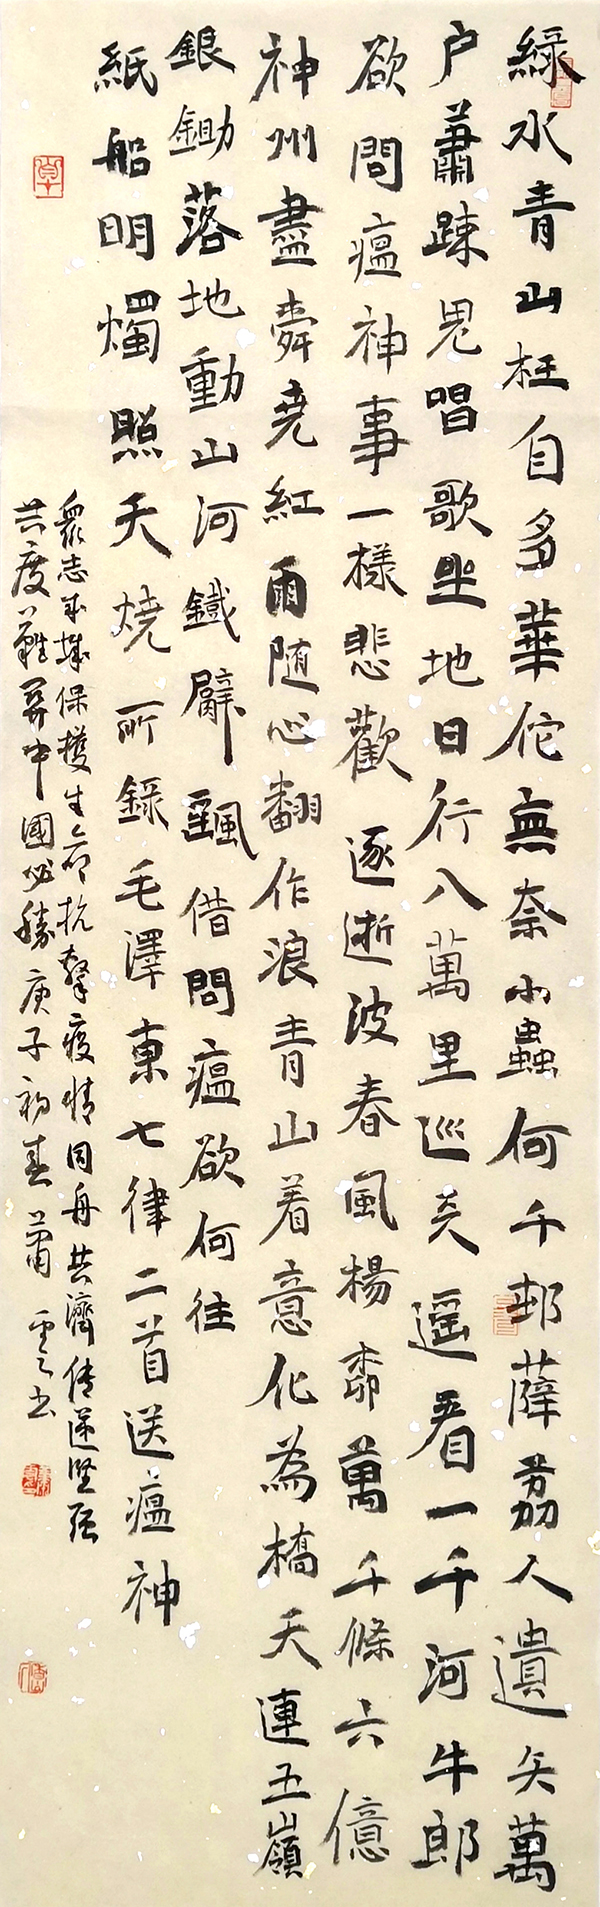 綠水青山枉自多華佗無奈小蟲何千邨薜荔人遺矢萬
户蕭疎鬼唱歌坐地日行八萬里巡天遥看一千河牛郎
欲問瘟神事一樣悲歡逐逝波春風楊柳萬千條六億
神州盡舜堯紅雨随心翻作浪青山着意化為橋天連五嶺
銀鋤落地動山河鐵臂颻借問瘟欲何往
紙船明燭照天燒所錄毛澤東七律二首送瘟神
眾志成城保護生命抗擊疫情同舟共濟傳遞堅强
共度難關中國必勝庚子初春蕭雲書